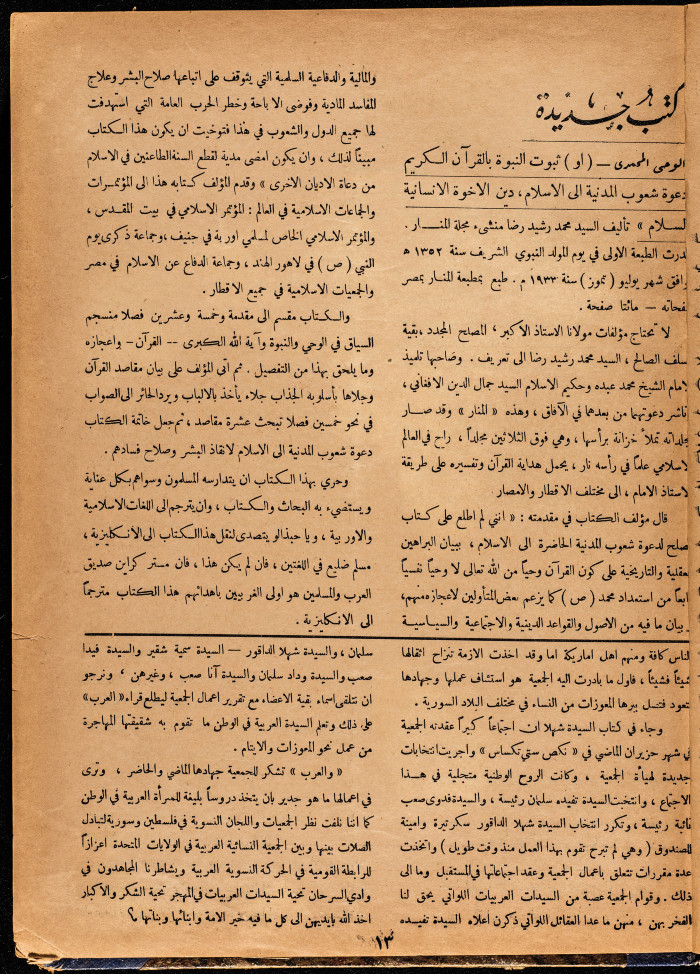 كتب جديدة
الوحي المحمدى — (او) ثبوت النبوة بالقرآن الكريم
دعوة شعوب المدنية الى الاسلام، دين الاخوة الانسانية
لسلام » تأليف السيد محمد رشيد رضا منشىء مجلة المنار .
درت الطبعة الاولى في يوم المولد النبوي الشريف سنة ١٣٥٢ ه
وافق شهر يوليو (تموز) سنة ١٩٣٣ م . طبع بمطبعة المنار بمصر
فحاته — مائتا صفحة .
لا تحتاج مؤلفات مولانا الاستاذ الاكبر، المصلح المجدد، بقية
سلف الصالح، السيد محمد رشيد رضا الى تعريف . وصاحبها تلميذ
لامام الشيخ محمد عبده وحكيم الاسلام السيد جمال الدين الافغاني،
ناشر دعوتهما من بعدهما في الآفاق، وهذه «المنار» وقد صار
جلداته تملأ خزانة برأسها، وهي فوق الثلاثين مجلداً، راح في العالم
لاسلامي علماً في رأسه نار، يحمل هداية القرآن وتفسيره على طريقة
لاستاذ الامام، الى مختلف الاقطار والامصار
قال مؤلف الكتاب في مقدمته : « انني لم اطلع على كتاب
صلح لدعوة شعوب المدنية الحاضرة الى الاسلام، ببيان البراهين
لعقلية والتاريخية على كون القرآن وحياً من الله تعالى لا وحياً نفسياً
ابعاً من استعداد محمد (ص) كما يزعم بعض المتأولين لاعجازه منهم،
بيان ما فيه من الاصول والقواعد الدينية والاجتماعية والسياسية
والمالية والدفاعية السلمية التي يتوقف على اتباعها صلاح البشر وعلاج
المفاسد المادية وفوضى الاباحة وخطر الحرب العامة التي استهدفت
لها جميع الدول والشعوب في هذا فتوخيت ان يكون هذا الكتاب
مبيناً لذلك، وان يكون امضى مدية لقطع السنة الطاعنين في الاسلام
من دعاة الاديان الاخرى » وقدم المؤلف كتابه هذا الى المؤتمرات
والجماعات الاسلامية في العالم : المؤتمر الاسلامي في بيت المقدس،
والمؤتمر الاسلامي الخاص لمسلمي اوربة في جنيف، وجماعة ذكرى يوم
النبي (ص) في لاهور الهند، وجماعة الدفاع عن الاسلام في مصر
والجمعيات الاسلامية في جميع الاقطار .
والكتاب مقسم الى مقدمة وخمسة وعشرين فصلا منسجم
السياق في الوحي والنبوة وآية الله الكبرى -- القرآن - واعجازه
وما يلحق بهذا من التفصيل . ثم اتى المؤلف على بيان مقاصد القرآن
وجلاها بأسلوبه الجذاب جلاء يأخذ بالالباب ويرد الحائر الى الصواب
في نحو خمسين فصلا تبحث عشرة مقاصد، ثم جعل خاتمة الكتاب
دعوة شعوب المدنية الى الاسلام لانقاذ البشر وصلاح فسادهم .
وحري بهذا الكتاب ان يتدارسه المسلمون وسواهم بكل عناية
ويستضيء به البحاث والكتاب، وان يترجم الى اللغات الاسلامية
والاوربية، ويا حبذا لو يتصدى لنقل هذا الكتاب الى الانكليزية،
مسلم ضليع في اللغتين، فان لم يكن هذا، فان مستر كراين صديق
العرب والمسلمين هو اولى الغربيين باهدائهم هذا الكتاب مترجماً
الى الانكليزية .
لناس كافة ومنهم اهل اماريكة اما وقد اخذت الازمة تنزاح اثقالها
شيئاً فشيئاً، فاول ما بادرت اليه الجمعية هو استئناف عملها وجهادها
تعود فتصل ببرها المعوزات من النساء في مختلف البلاد السورية .
وجاء في كتاب السيدة شهلا ان اجتماعاً كبيراً عقدته الجمعية
في شهر حزيران الماضي في « نكص ستي تكساس » واجريت انتخابات
جديدة لهيأة الجمعية، وكانت الروح الوطنية متجلية في هذا
الاجتماع، وانتخبت السيدة تفيده سلمان رئيسة، والسيدة فدوى صعب
نائبة رئيسة، وتكرر انتخاب السيدة شهلا الداقور سكرتيرة وامينة
للصندوق (وهي لم تبرح تقوم بهذا العمل منذ وقت طويل) واتخذت
عدة مقررات تتعلق باعمال الجمعية وعقد اجتماعاتها في المستقبل وما الى
ذلك . وقوام الجمعية عصبة من السيدات العربيات اللواتي يحق لنا
الفخر بهن، منهن ما عدا العقائل اللواتي ذكرن اعلاه السيدة تفيده
سلمان، والسيدة شهلا الداقور — السيدة سمية شقير والسيدة فيدا
صعب والسيدة وداد سلمان والسيدة آنا صعب، وغيرهن، ونرجو
ان نتلقى اسماء بقية الاعضاء مع تقرير اعمال الجمعية ليطلع قراء «العرب»
على ذلك وتعلم السيدة العربية في الوطن ما تقوم به شقيقتها المهاجرة
من عمل نحو المعوزات والايتام .
« والعرب » تشكر للجمعية جهادها الماضي والحاضر، وترى
في اعمالها ما هو جدير بان يتخذ دروساً بليغة للمرأة العربية في الوطن
كما اننا نلفت نظر الجمعيات واللجان النسوية في فلسطين وسورية لتبادل
الصلات بينها وبين الجمعية النسائية العربية في الولايات المتحدة اعزازاً
للرابطة القومية في الحركة النسوية العربية ويشاطرنا المجاهدون في
وادي السرحان تحية السيدات العربيات في المهجر تحية الشكر والاكبار
اخذ الله بايديهن الى كل ما فيه خير الامة وابنائها وبناتها
١٣